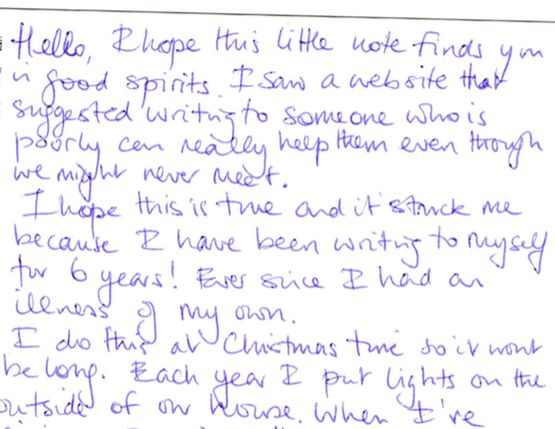 Hello, I hope this little note finds you
in good spirits. I saw a website that
suggested writing to someone who is
poorly can really help them even though
we might never meet.
I hope this is true and it struck me
because I have been writing to myself
for 6 years! Ever since I had an
illness of my own.
I do this at Christmas time so it wont
be long. Each year I put lights on the
outside of our house. When I've